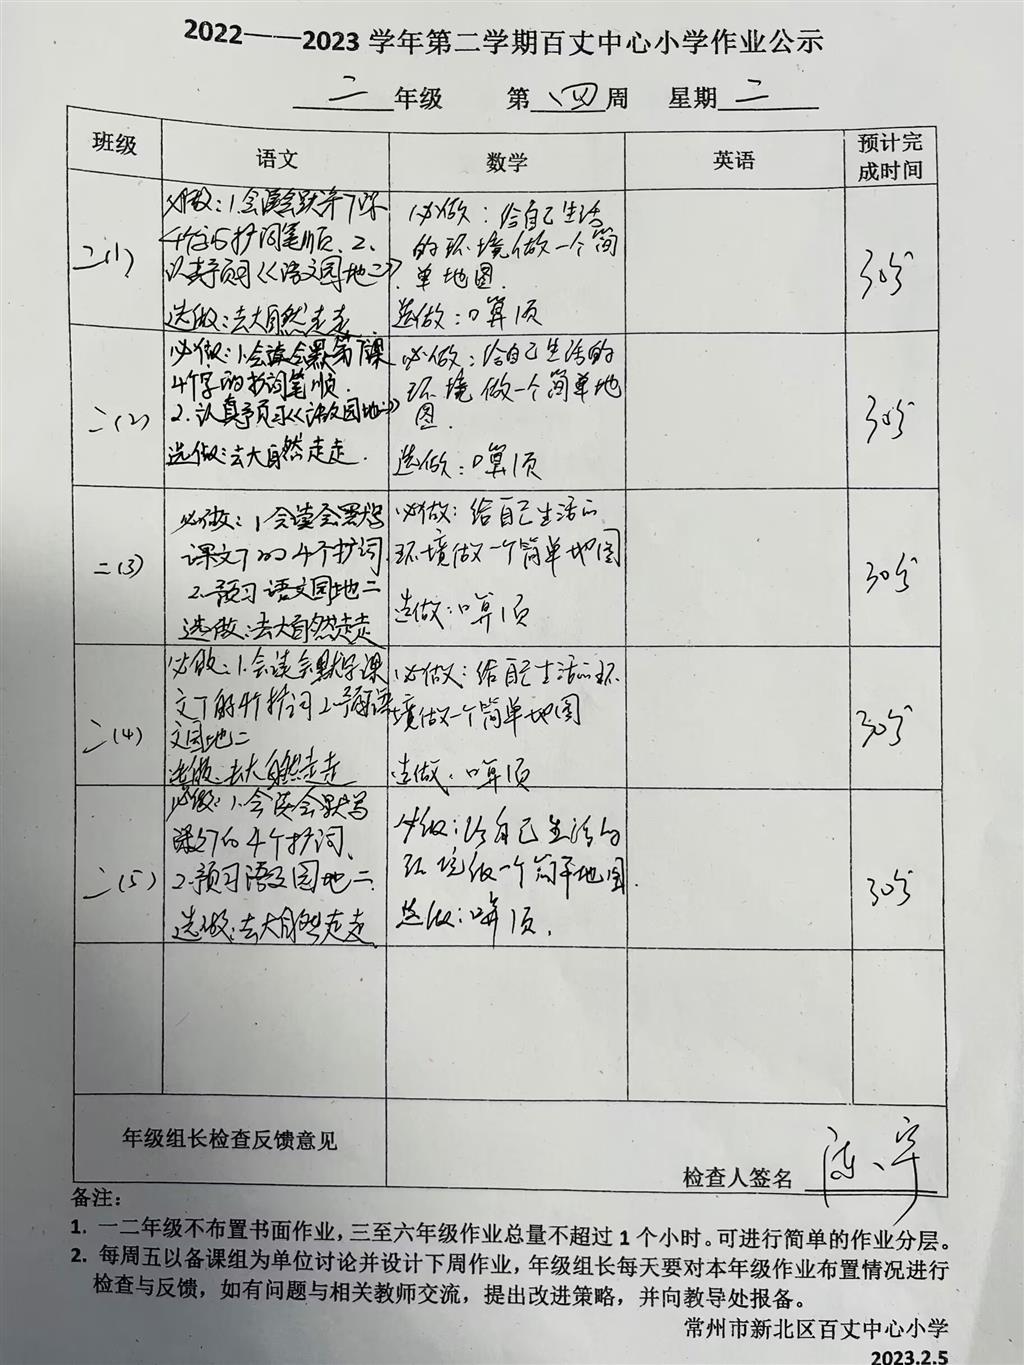 2022——2023 学年第二学期百丈中心小学作业公示
二 年级 第 四 周 星期 二
班级 语文 数学 英语 预计完成时间
二(1)
必做：1.会读会默第7课
4个字的扩词笔顺. 2.
认真预习《语文园地二》
选做：去大自然走走
必做：给自己生活
的环境做一个简
单地图.
选做：口算1页
30分
二(2)
必做：1.会读会默第7课
4个字的扩词笔顺.
2.认真预习《语文园地二》
选做：去大自然走走.
必做：给自己生活的
环境做一个简单地
图.
选做：口算1页
30分
二(3)
必做：1.会读会默写
课文7的4个扩词
2.预习语文园地二
选做：去大自然走走
必做：给自己生活的
环境做一个简单地图
选做：口算1页
30分
二(4)
必做：1.会读会默写课
文7的4个扩词2.预习语
文园地二
选做：去大自然走走
必做：给自己生活的环
境做一个简单地图
选做：口算1页
30分
二(5)
必做：1.会读会默写
课文7的4个扩词、
2.预习语文园地二.
选做：去大自然走走
必做：给自己生活的
环境做一个简单地图.
选做：口算1页.
30分
年级组长检查反馈意见
检查人签名
备注：
1. 一二年级不布置书面作业，三至六年级作业总量不超过 1 个小时。可进行简单的作业分层。
2. 每周五以备课组为单位讨论并设计下周作业，年级组长每天要对本年级作业布置情况进行
检查与反馈，如有问题与相关教师交流，提出改进策略，并向教导处报备。
常州市新北区百丈中心小学
2023.2.5